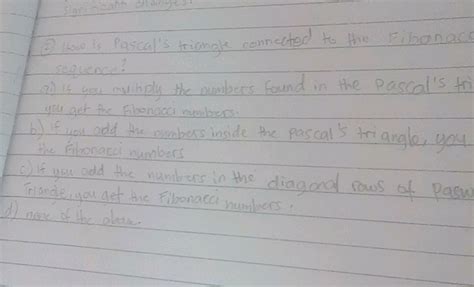 significant changes?
2) How is Pascal's triangle connected to the Fibonacc
sequence?
a) If you multiply the numbers found in the Pascal's tri
you get the Fibonacci numbers.
b) If you add the numbers inside the pascal's triangle, you
the Fibonacci numbers
c) If you add the numbers in the diagonal rows of Pasca
Triangle, you get the Fibonacci numbers.
d) none of the above.